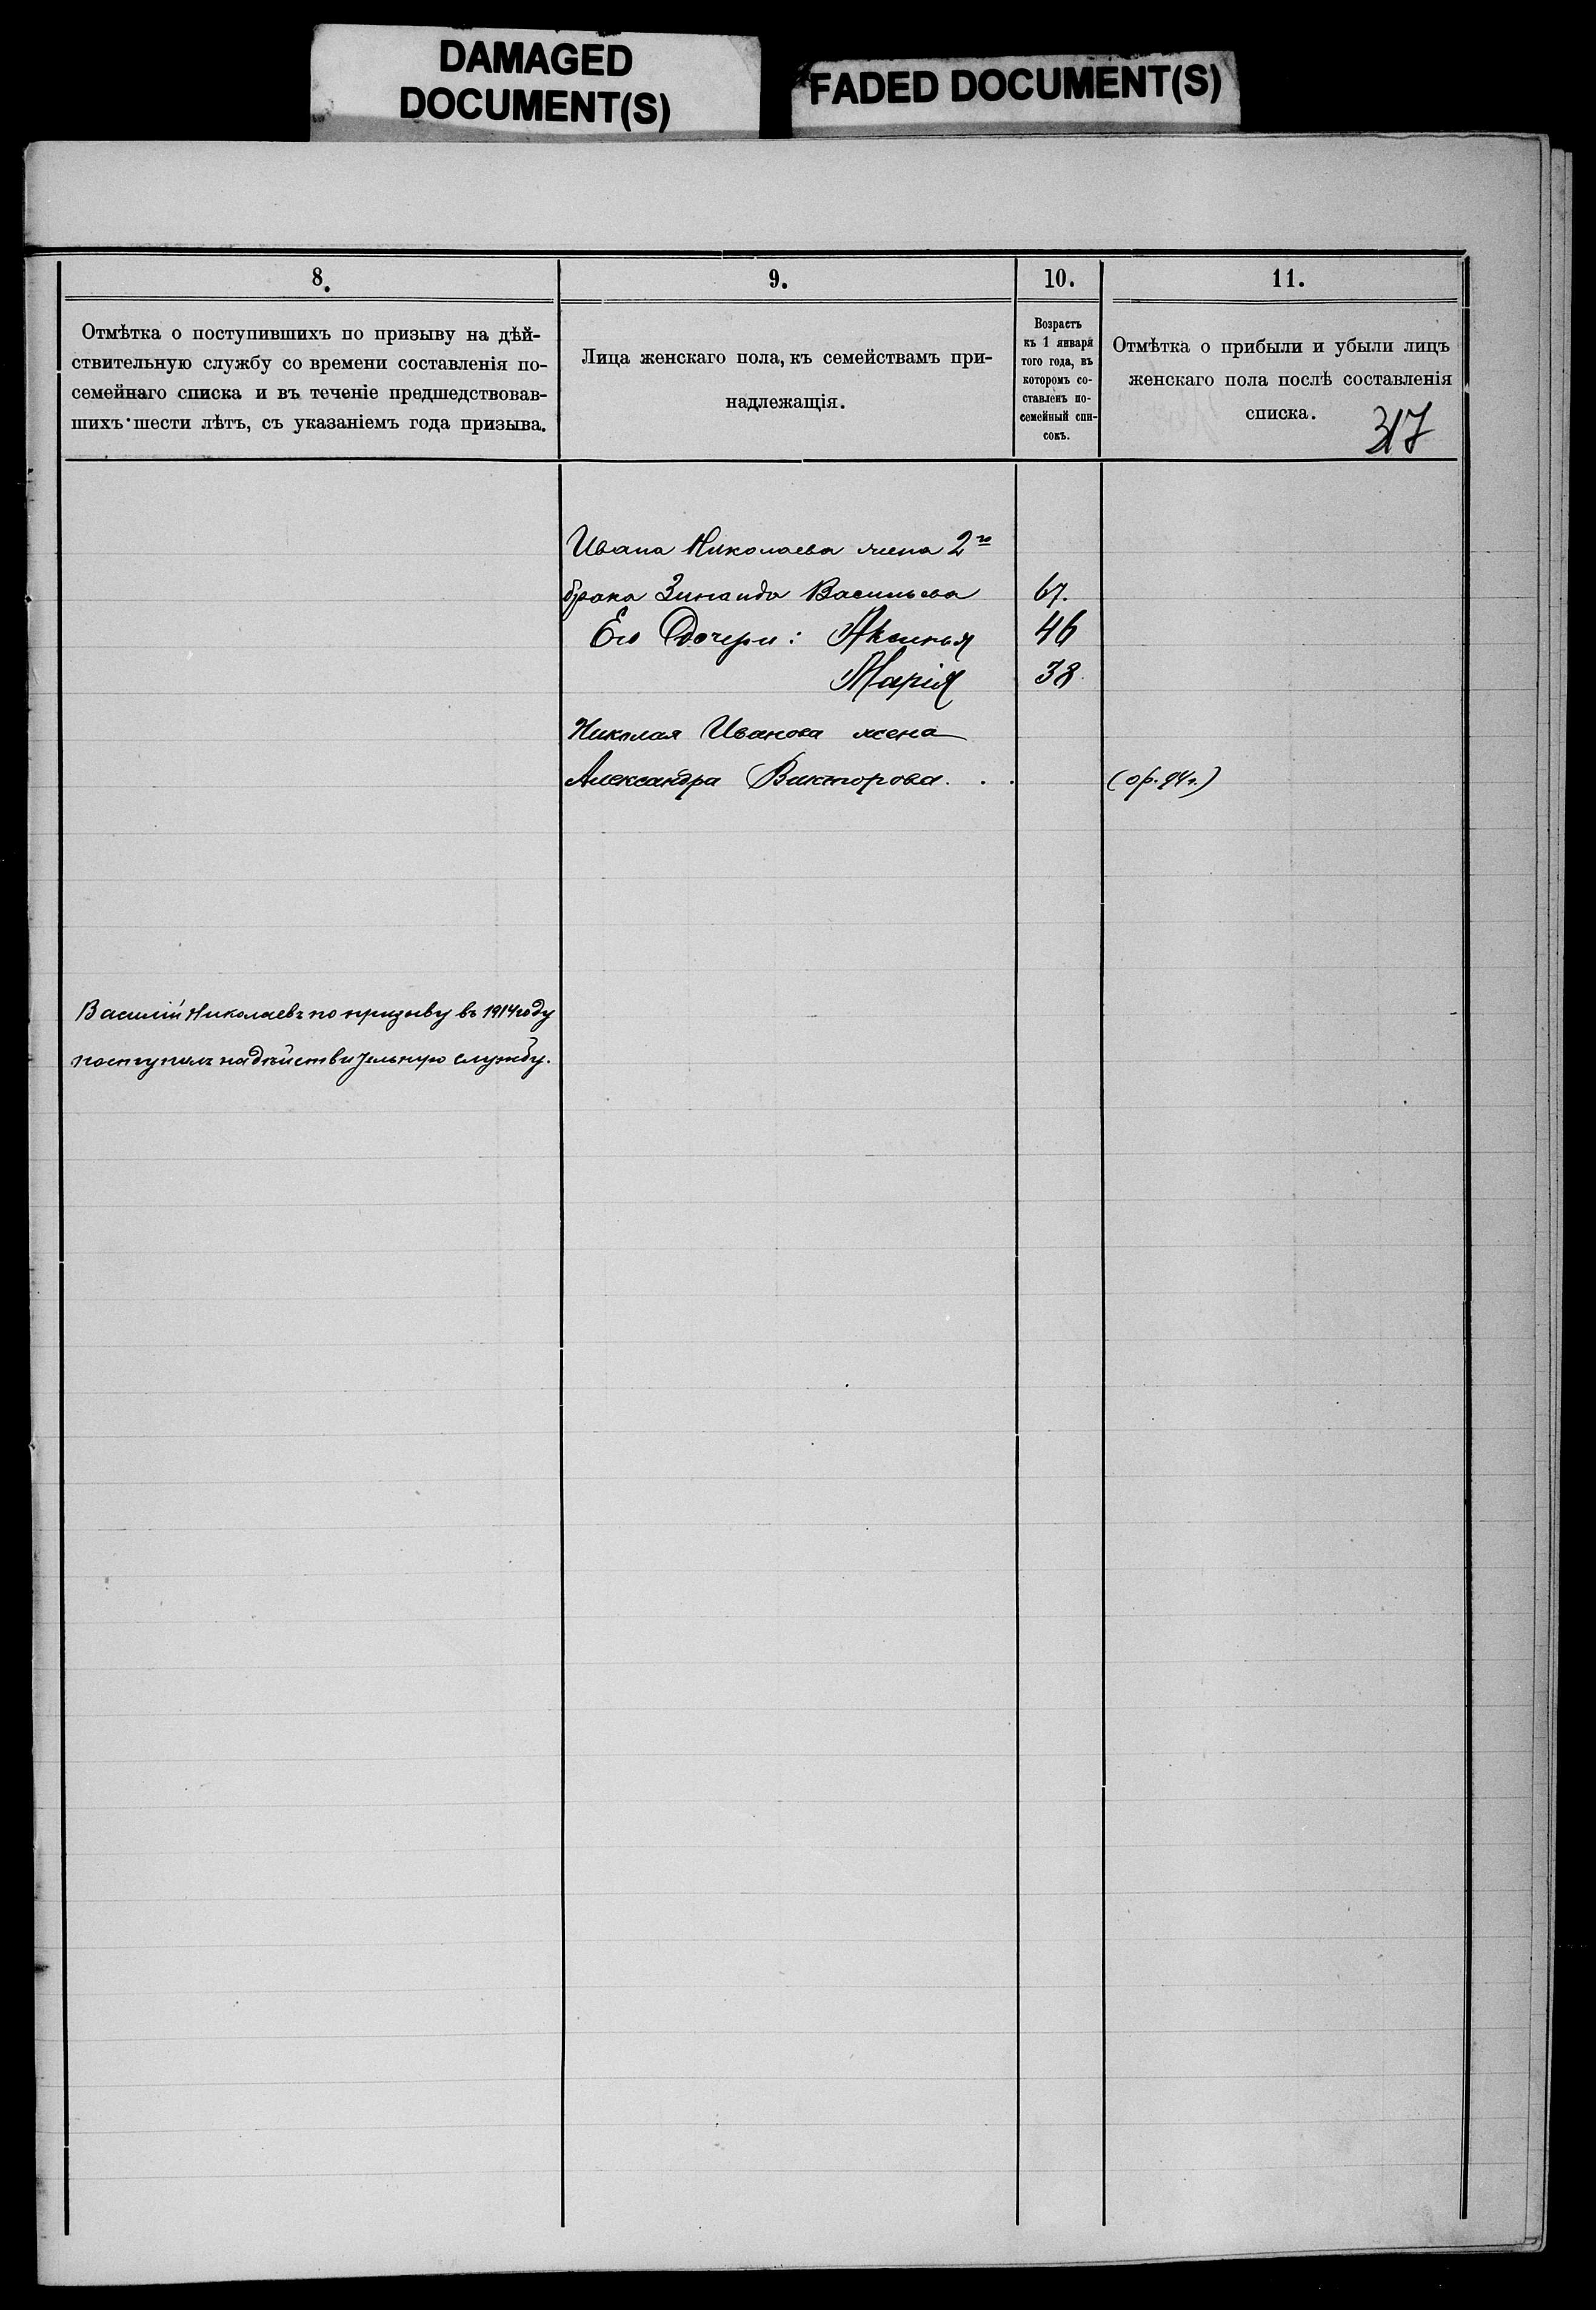 DAMAGED
DOCUMENT(S)
FADED DOCUMENT(S)
8.
Отмѣтка о поступившихъ по призыву на дѣй-
ствительную службу со времени составленія по-
семейнаго списка и въ теченіе предшедствовав-
шихъ шести лѣтъ, съ указаніемъ года призыва.
9.
Лица женскаго пола, къ семействамъ при-
надлежащія.
10.
Возрастъ
къ 1 января
того года, въ
которомъ со-
ставленъ по-
семейный спи-
сокъ.
11.
Отмѣтка о прибыли и убыли лицъ
женскаго пола послѣ составленія
списка.
317
Ивана Николаева жена 2го
брака Зинаида Васильева 67.
Его Дочери: Аксинья 46
Марія 38.
Николая Иванова жена
Александра Викторова . .
Василій Николаевъ по призыву въ 1914 году
поступилъ на дѣйствительную службу.